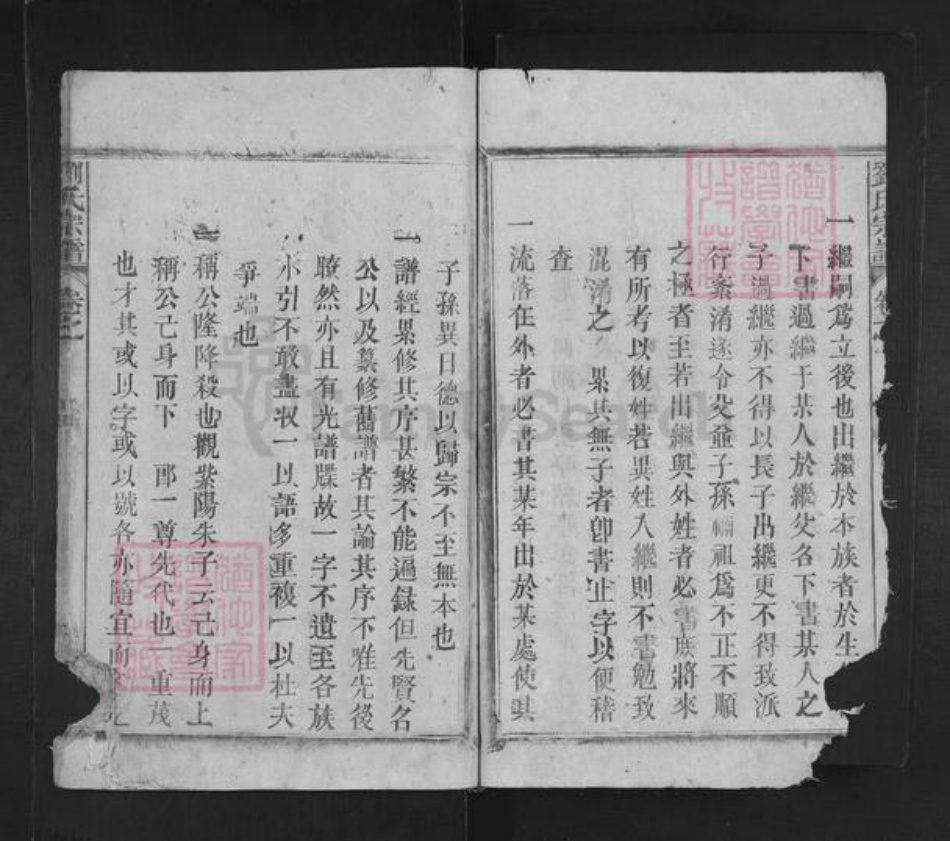 劉氏宗譜
一繼嗣爲立後也出繼於本族者於生
下書過繼于某人於繼父名下書某人之
子過繼亦不得以長子出繼更不得致派
行紊淆遂令父爺子孫禰祖爲不正不順
之極者至若出繼與外姓者必書庶將來
有所考以復姓若異姓入繼則不書勉致
混淆之 果其無子者卽書止字以便稽
查
一流落在外者必書其某年出於某處使其
子孫異日德以歸宗不至無本也
一譜經累修其序甚繁不能遍録但先賢名
公以及纂修舊譜者其論其序不唯先後
瞭然亦且有光譜牒故一字不遺至各族
小引不敢盡収一以語多重複一以杜夫
爭端也
一稱公隆降殺也觀紫陽朱子云己身而上
稱公己身而下 郎一尊先代也一重茂
也才其或以字或以號各亦隨宜而
劉氏宗譜 卷之一
FamilySearch